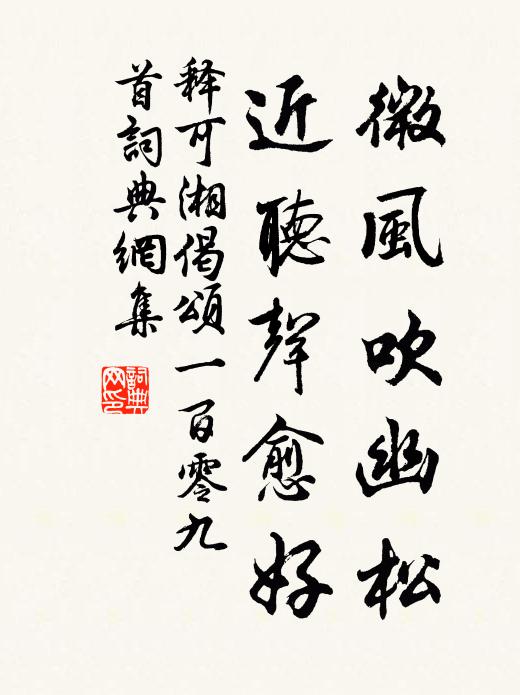 微風吹幽松
近聽聲愈好
释可湘偈頌一百零九
首詞典網集
詞典
网印